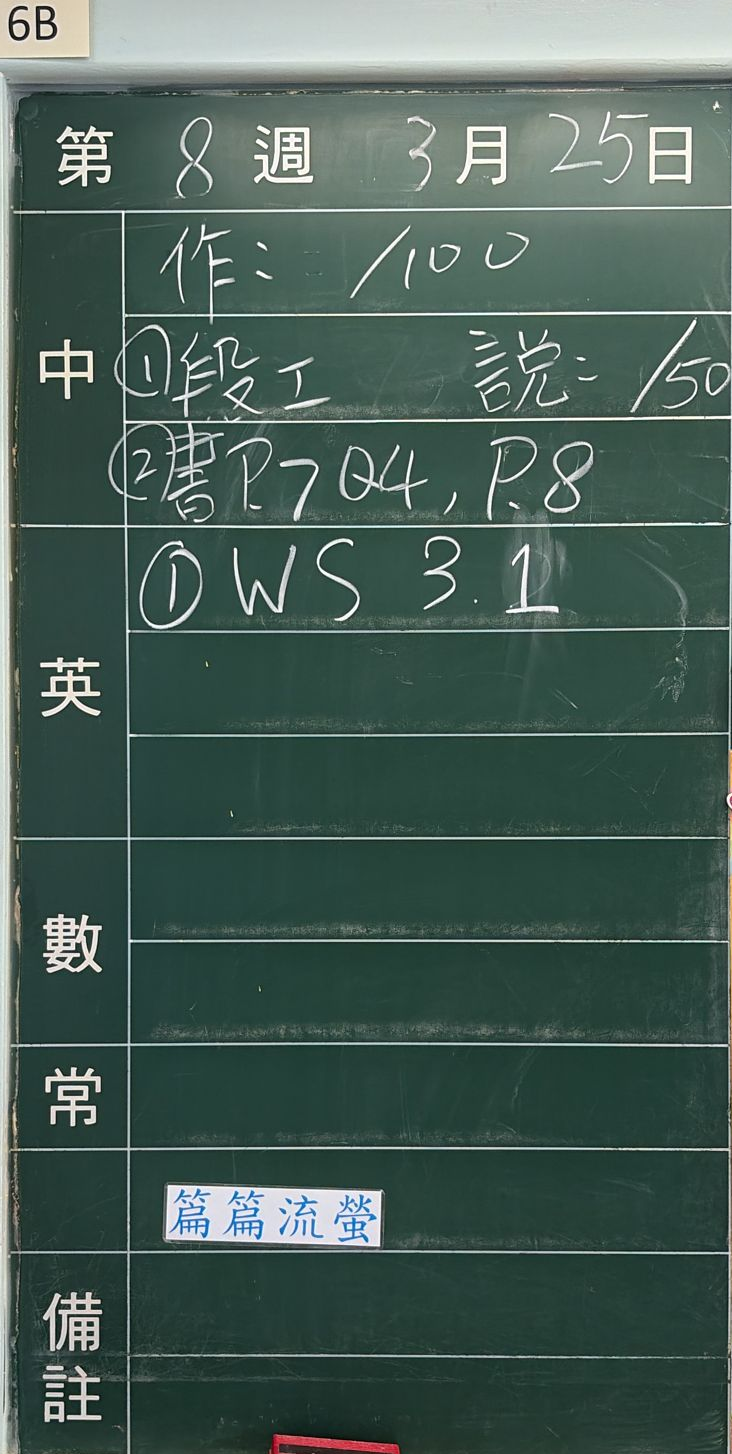 6B
第 8 週 3 月 25 日
中
作： /100
①段工 説： /50
②書P.7 Q4, P.8
英
① WS 3.1
數
常
篇篇流螢
備註